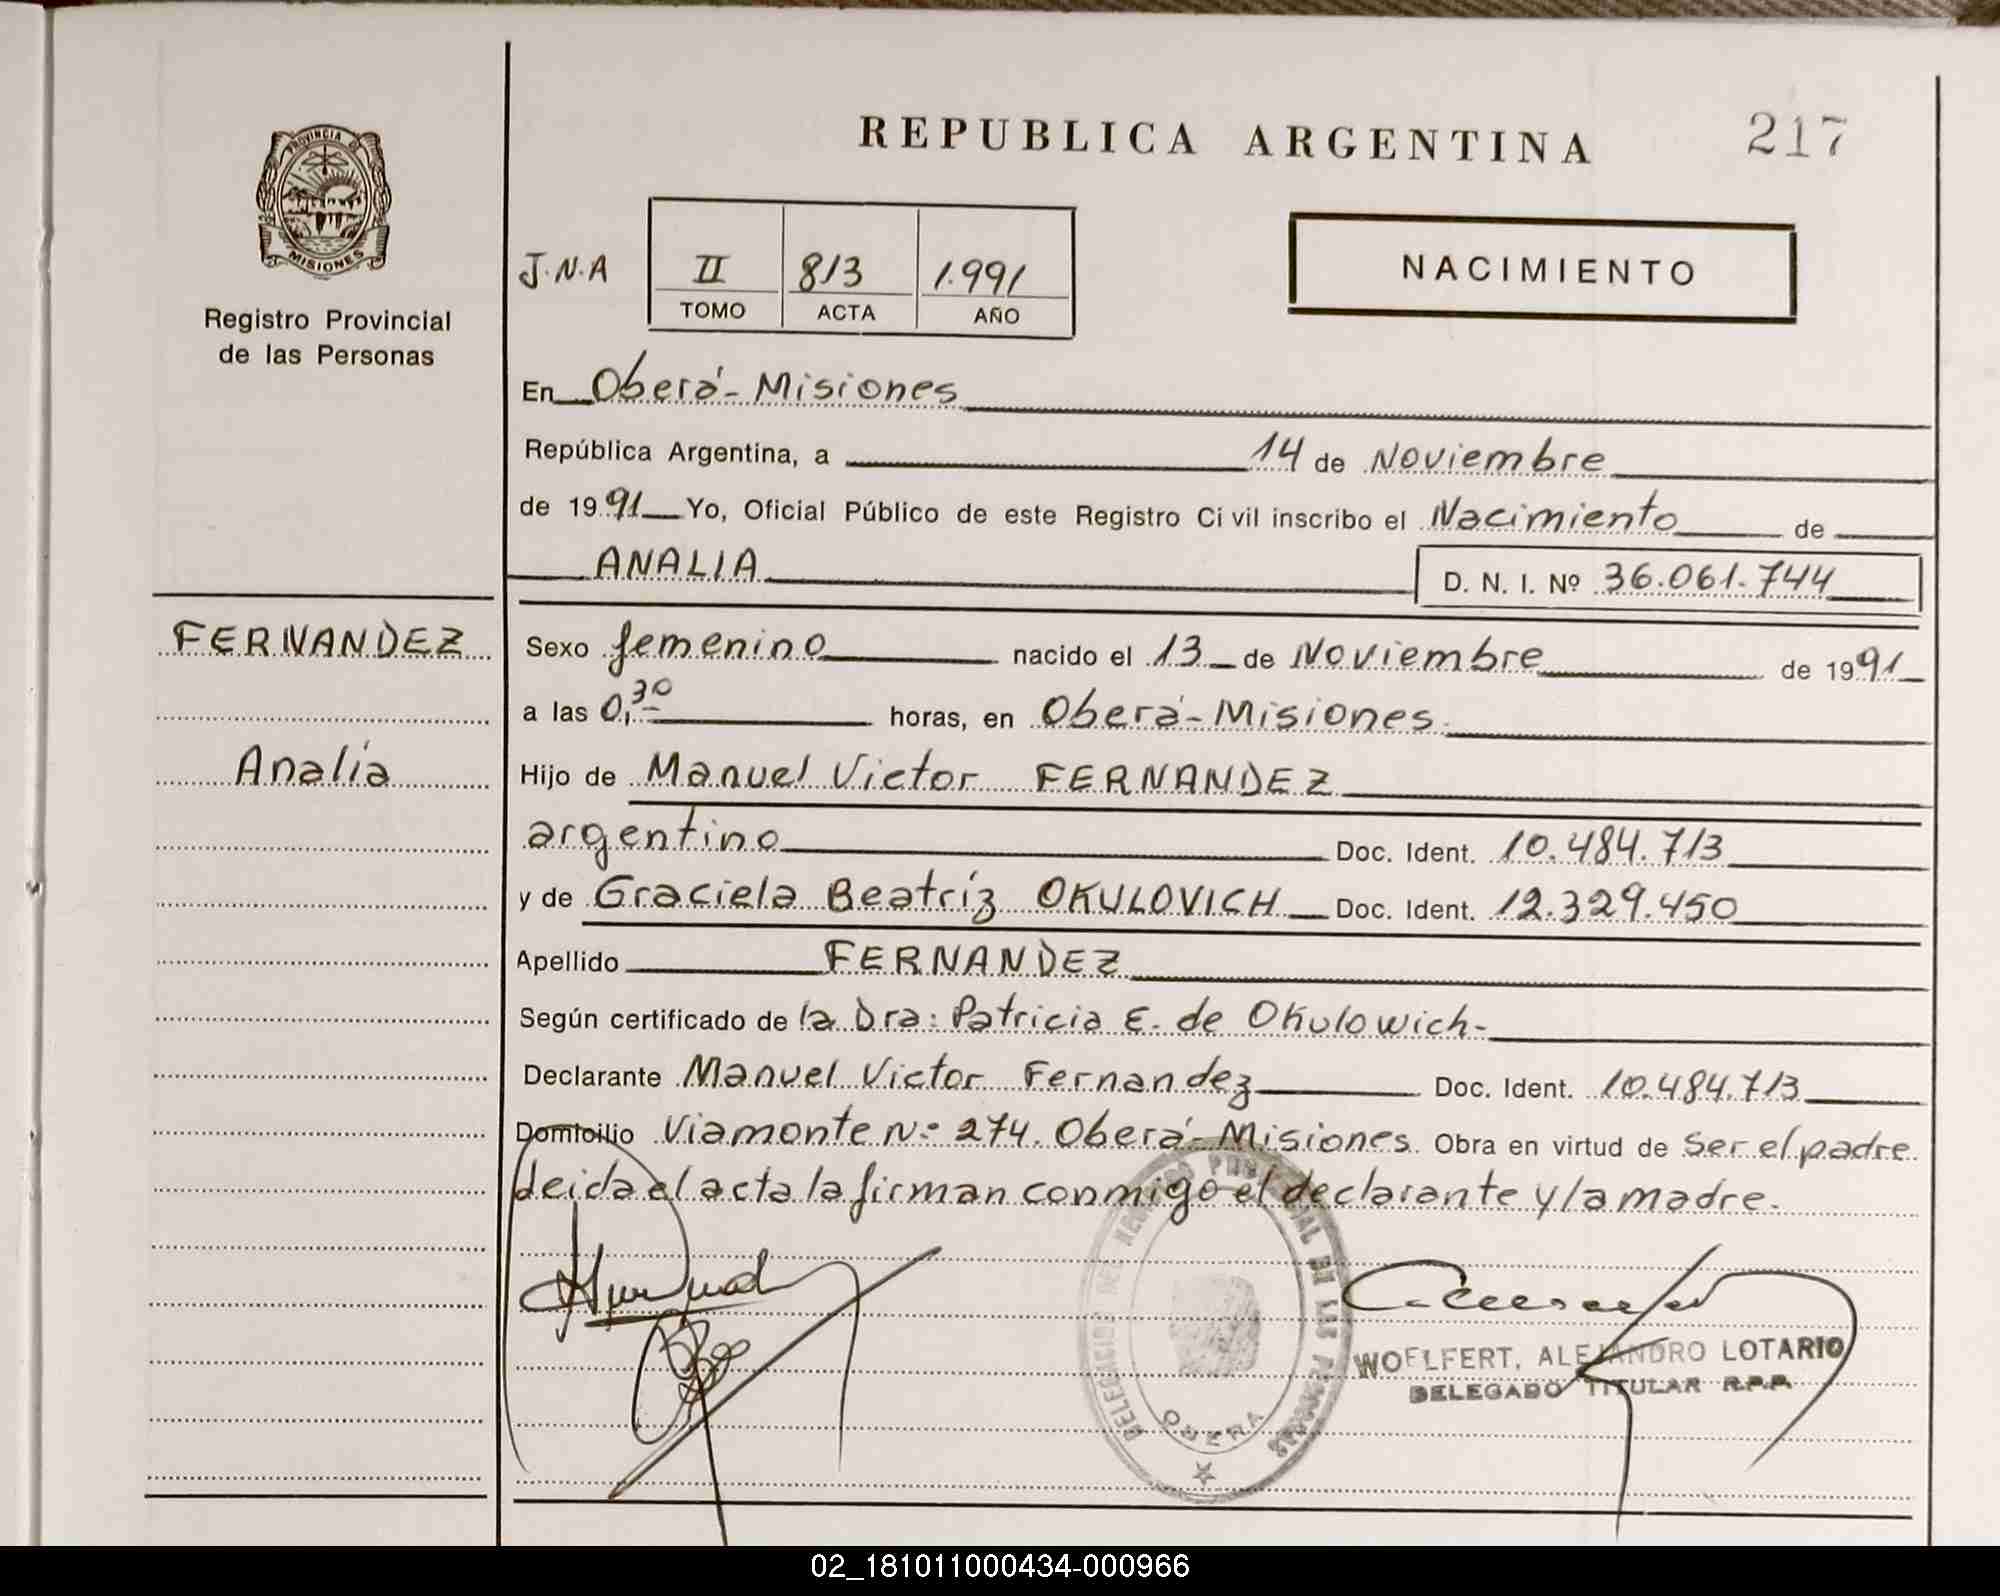 REPUBLICA ARGENTINA
217
PROVINCIA DE
MISIONES
Registro Provincial
de las Personas
J.N.A
II 813 1.991
TOMO ACTA AÑO
NACIMIENTO
En Oberá - Misiones
República Argentina, a 14 de Noviembre
de 1991 Yo, Oficial Público de este Registro Civil inscribo el Nacimiento de
ANALIA D. N. I. Nº 36.061.744
FERNANDEZ
Analía
Sexo femenino nacido el 13 de Noviembre de 1991
a las 0,30 horas, en Oberá - Misiones.
Hijo de Manuel Victor FERNANDEZ
argentino Doc. Ident. 10.484.713
y de Graciela Beatríz OKULOVICH Doc. Ident. 12.329.450
Apellido FERNANDEZ
Según certificado de la Dra: Patricia E. de Okulowich-
Declarante Manuel Victor Fernandez Doc. Ident. 10.484.713
Domicilio Viamonte N.º 274. Oberá - Misiones. Obra en virtud de ser el padre.
Leida el acta la firman conmigo el declarante y la madre.
DELEGACION DEL REGISTRO PROVINCIAL DE LAS PERSONAS
OBERA
WOELFERT, ALEJANDRO LOTARIO
DELEGADO TITULAR R.P.P.
02_181011000434-000966